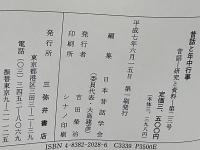 昔話と年中行事
昔話―研究と資料―第二三号
定価三、五〇〇円
(本体三、三九八円)
平成七年六月一五日 第一刷発行
編集 日本昔話学会
発行者 吉田榮治
印刷所 シナノ印刷
発行所 三弥井書店
東京都港区三田三―二―三九
電話(〇三)三四五二―八〇六九
振替東京九―二一一二五
ISBN 4-8382-2028-6 C3339 P3500E